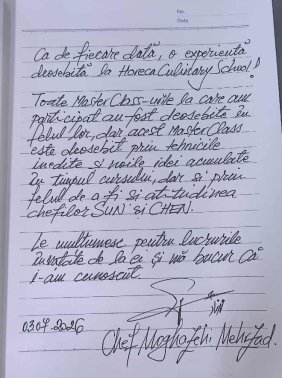 No.
Date
Ca de fiecare dată, o experiență
deosebită la Horeca Culinary School!
Toate MasterClass-urile la care am
participat au fost deosebite în
felul lor, dar acest MasterClass
este deosebit prin tehnicile
inedite și noile idei acumulate
în timpul cursului, dar și prin
felul de a fi și atitudinea
chefilor SUN și CHEN.
Le mulțumesc pentru lucrurile
învățate de la ei și mă bucur că
i-am cunoscut.
03.07.2026
Chef, Moghafehi Mehrzad.